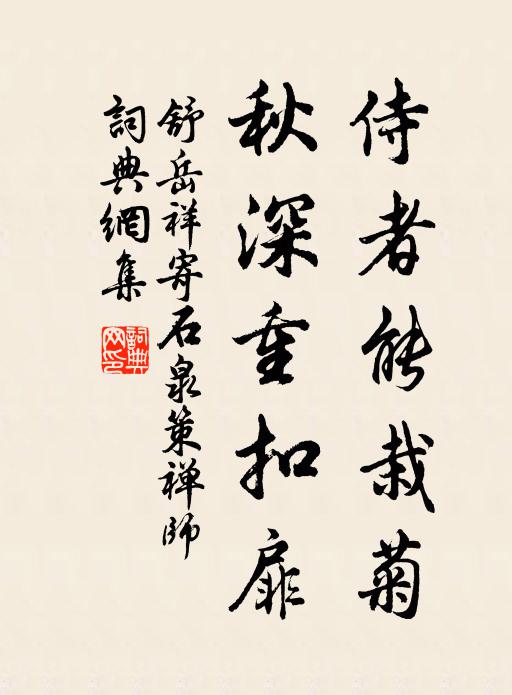 侍者能栽菊
秋深重扣扉
舒岳祥寄石泉策禅师
詞典網集
詞典網印